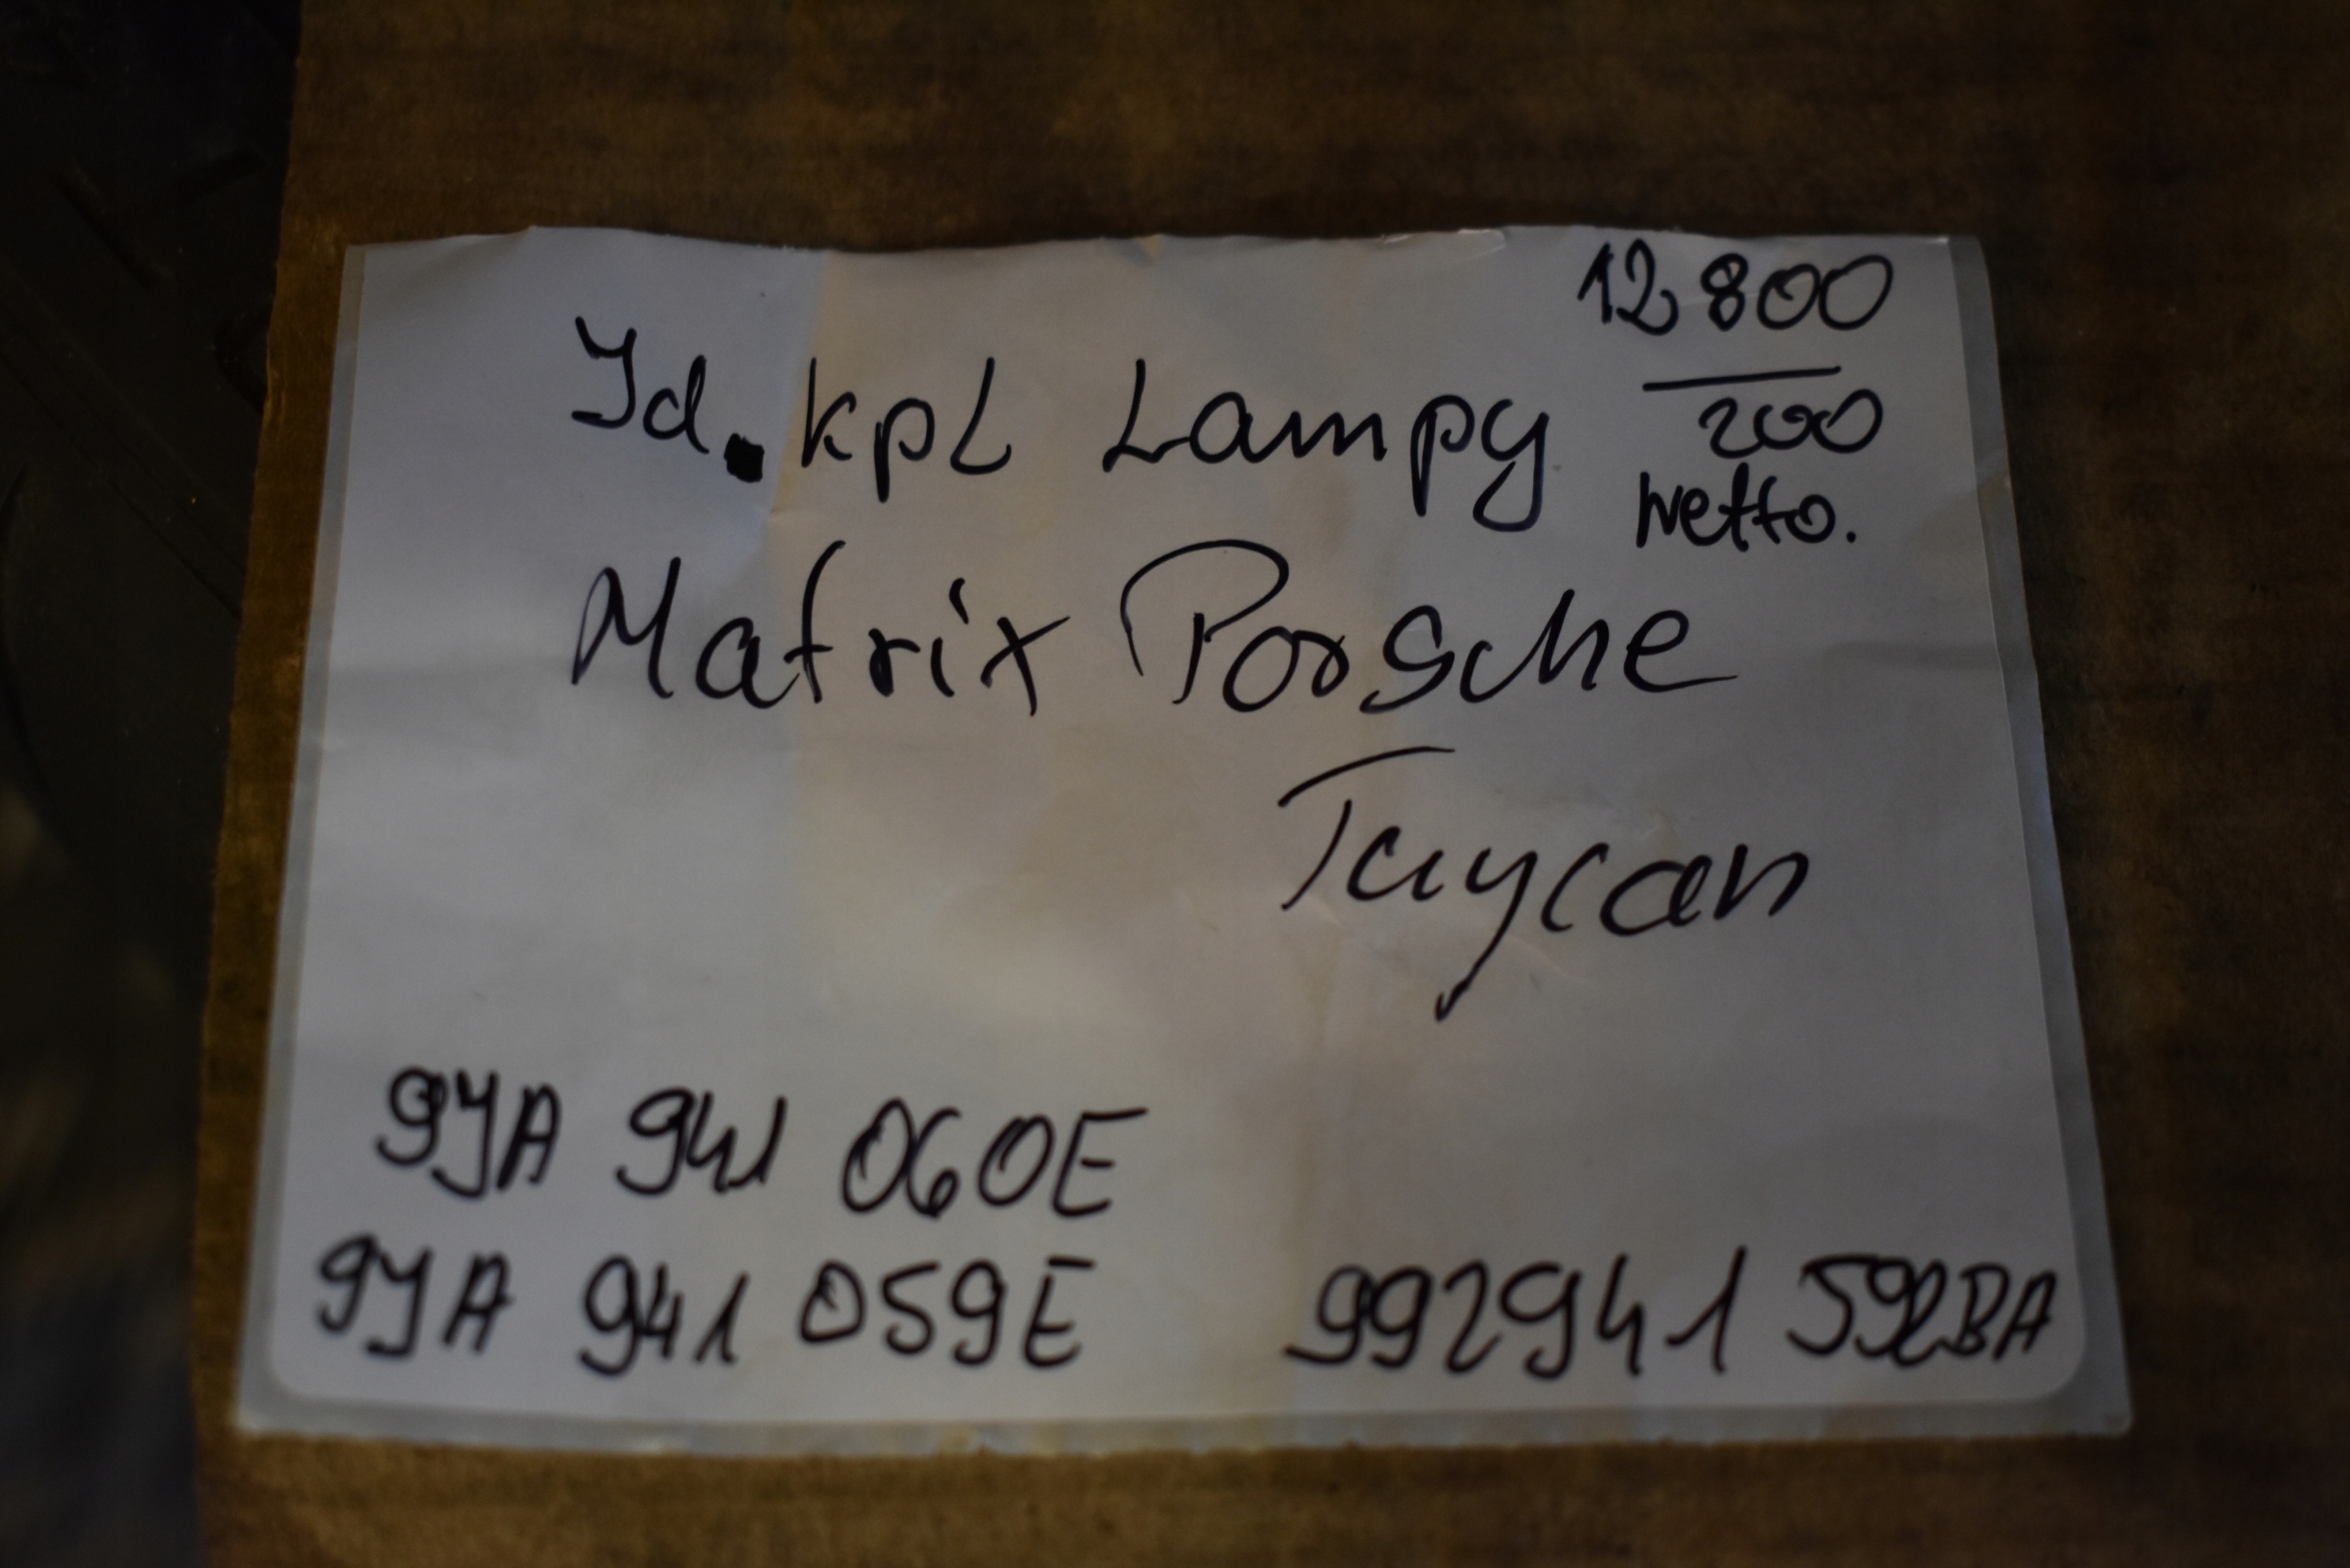 12 800
200
netto.
Id. kpl Lampy
Matrix Porsche
Taycan
9JA 941 060E
9JA 941 059E
992941 592BA